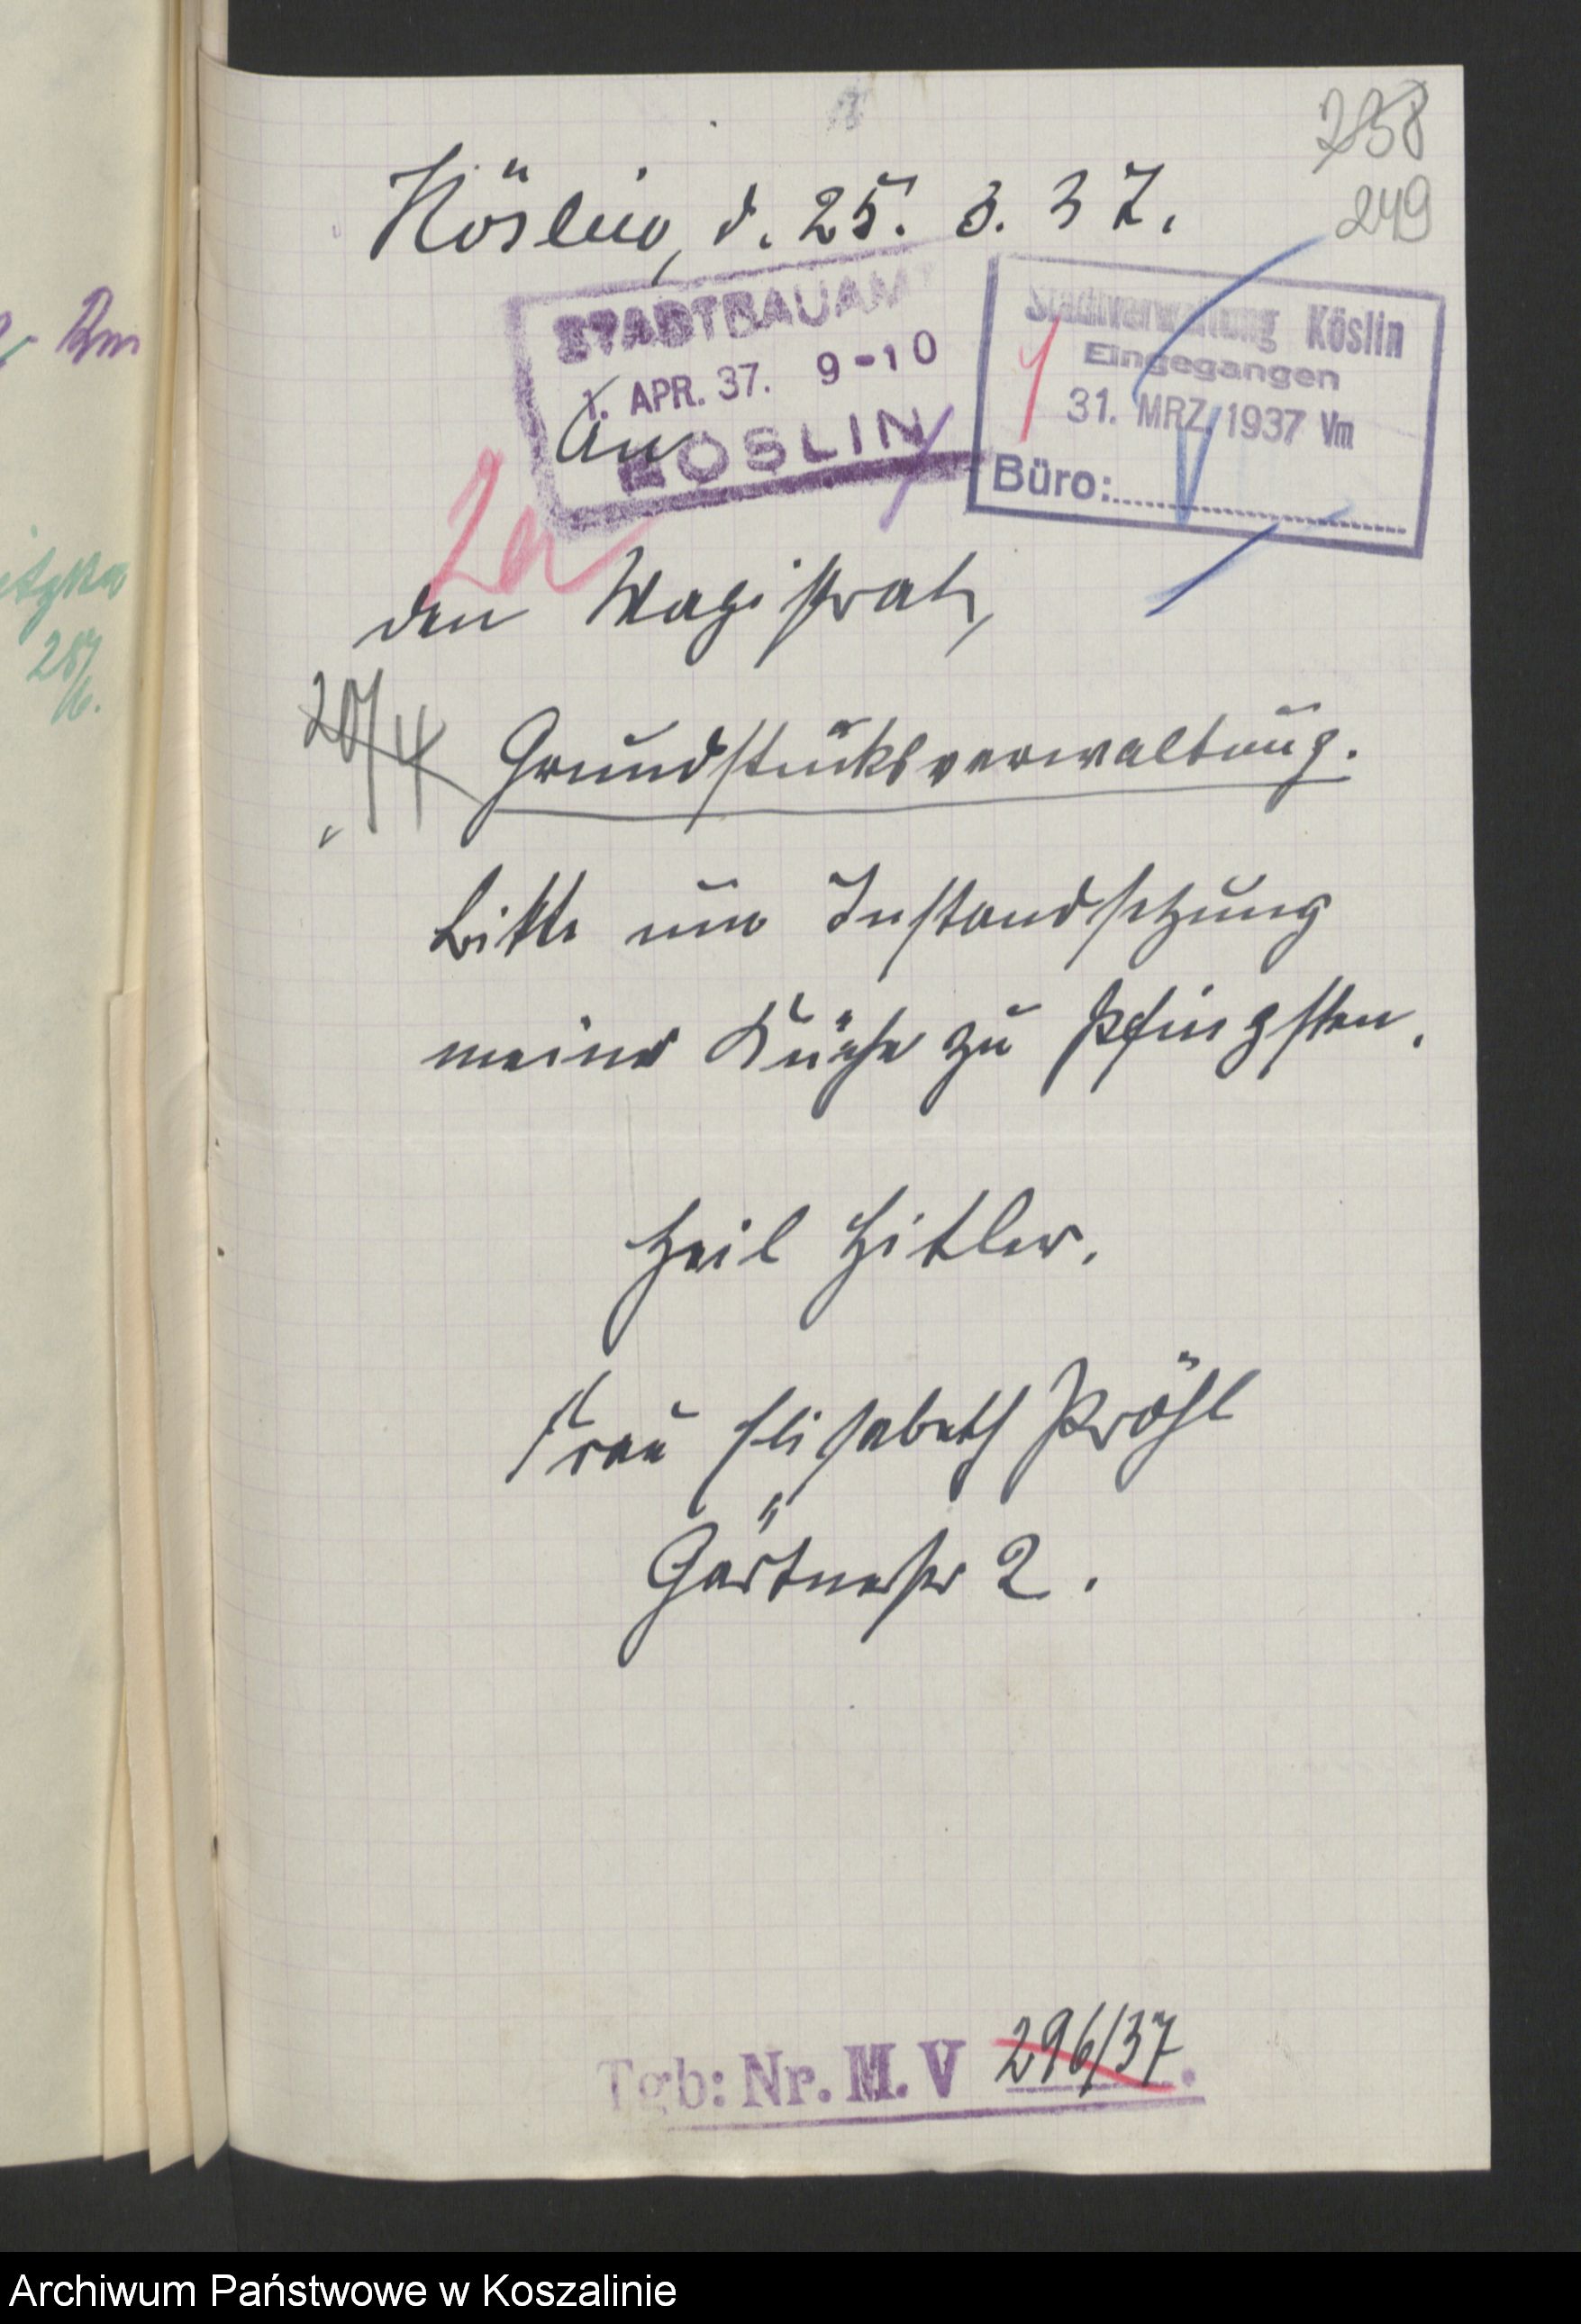 238
249
Köslin, d. 25. 3. 37.
STADTBAUAMT
1. APR. 37. 9-10
KÖSLIN
Stadtverwaltung Köslin
Eingegangen
31. MRZ. 1937 Vm
Büro:
An
den Magistrat,
20/4
Grundstücksverwaltung.
Bitte um Instandsetzung
meiner Küche zu Pfingsten.
Heil Hitler.
Frau Elisabeth Pröhl
Gärtnerstr 2.
Tgb: Nr. M. V 296/37.
Archiwum Państwowe w Koszalinie